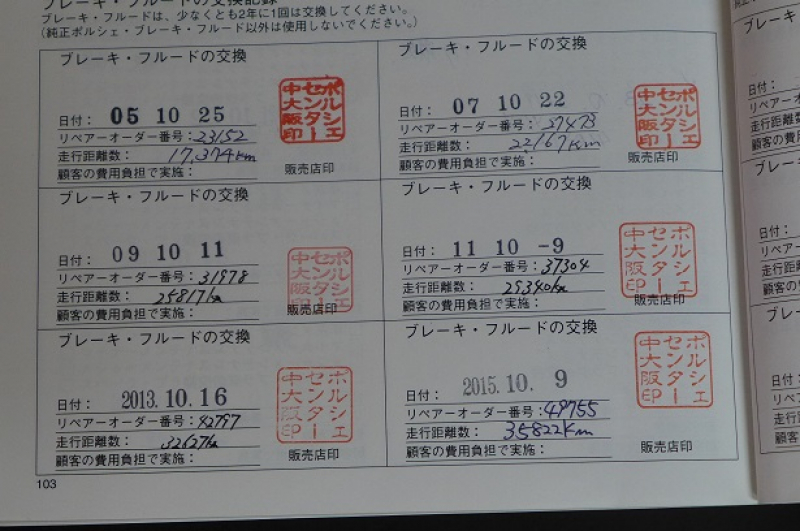 ブレーキ・フルードの交換記録
ブレーキ・フルードは、少なくとも2年に1回は交換してください。
(純正ポルシェ・ブレーキ・フルード以外は使用しないでください。)
ブレーキ・フルードの交換
日付: 05 10 25
リペアーオーダー番号: 23152
走行距離数: 17,374km
顧客の費用負担で実施:
ポルシェセンター中大阪印
販売店印
ブレーキ・フルードの交換
日付: 07 10 22
リペアーオーダー番号: 27473
走行距離数: 22167km
顧客の費用負担で実施:
ポルシェセンター中大阪印
販売店印
ブレーキ・フルードの交換
日付: 09 10 11
リペアーオーダー番号: 31978
走行距離数: 25817km
顧客の費用負担で実施:
ポルシェセンター中大阪印
販売店印
ブレーキ・フルードの交換
日付: 11 10 -9
リペアーオーダー番号: 37304
走行距離数: 29340km
顧客の費用負担で実施:
ポルシェセンター中大阪印
販売店印
ブレーキ・フルードの交換
日付: 2013.10.16
リペアーオーダー番号: 42797
走行距離数: 32627km
顧客の費用負担で実施:
ポルシェセンター中大阪印
販売店印
ブレーキ・フルードの交換
日付: 2015.10. 9
リペアーオーダー番号: 49755
走行距離数: 35822km
顧客の費用負担で実施:
ポルシェセンター中大阪印
販売店印
103